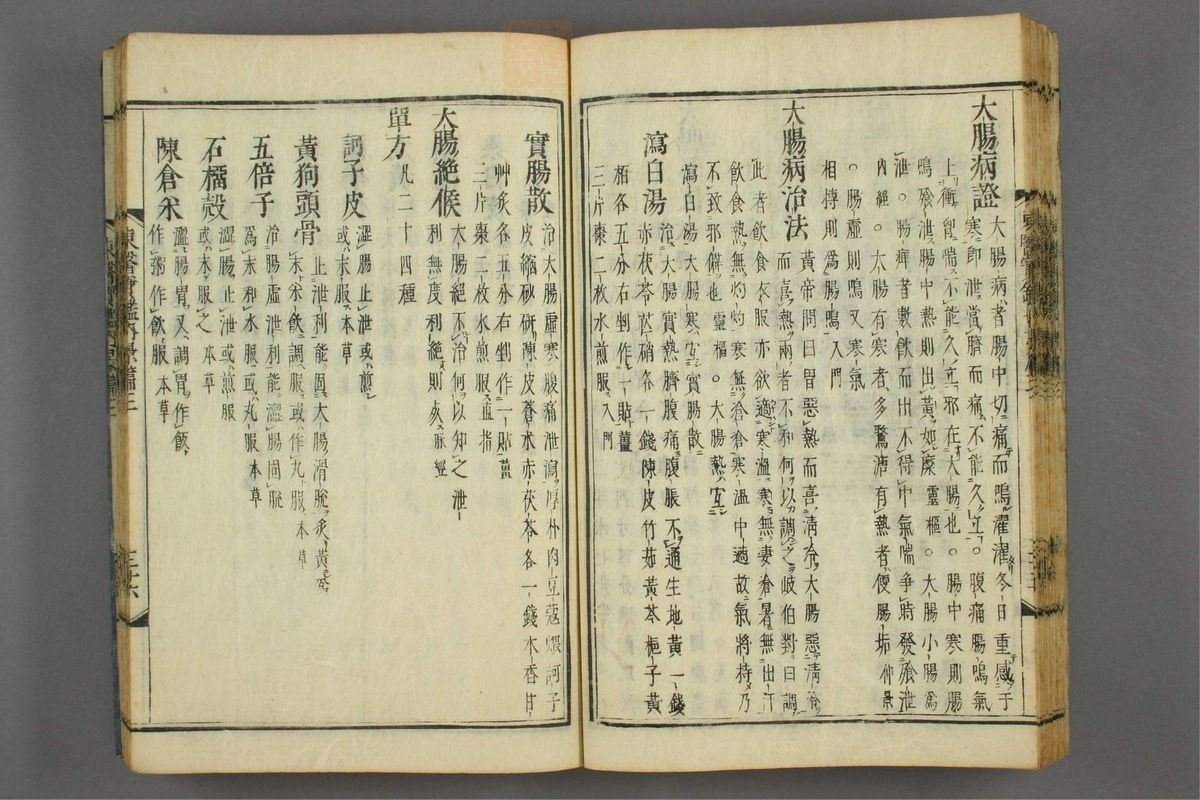 大腸病證 大腸病者腸中切痛而鳴濯濯冬日重感于
寒即泄當臍而痛不能久立。腹痛腸鳴氣
上衝胷喘不能久立邪在大腸也。腸中寒則腸
鳴飱泄腸中熱則出黃如糜靈樞。大腸小腸爲
泄。腸痺者數飮而出不得中氣喘爭時發飱泄
內經。大腸有寒者多鶩溏有熱者便腸垢仲景
。腸虛則鳴又寒氣
相搏則爲腸鳴入門
大腸病治法 黃帝問曰胃惡熱而喜淸冷大腸惡淸冷
而喜熱兩者不和何以調之岐伯對曰調
此者飮食衣服亦欲適寒溫寒無凄滄暑無出汗
飮食熱無灼灼寒無滄滄寒溫中適故氣將持乃
不致邪僻也靈樞。大腸熱宜
瀉白湯大腸寒宜實腸散
瀉白湯 治大腸實熱臍腹痛腹脹不通生地黃一錢
赤茯苓芒硝各一錢陳皮竹茹黃芩梔子黃
栢各五分右剉作一貼薑
三片棗二枚水煎服入門
實腸散 治大腸虛寒腹痛泄瀉厚朴肉豆蔻煨訶子
皮縮砂硏陳皮蒼朮赤茯苓各一錢木香甘
艸炙各五分右剉作一貼薑
三片棗二枚水煎服直指
大腸絶候 大腸絶不治何以知之泄
利無度利絶則死脉經
單方 凡二十四種
訶子皮 澁腸止泄或煎
或末服本草
黃狗頭骨 止泄利能固大腸滑脫炙黃爲
末米飮調服或作丸服本草
五倍子 治腸虛泄利能澁腸固脫
爲末和水服或丸服本草
石榴殼 澁腸止泄或煎服
或末服之本草
陳倉米 澁腸胃又調胃作飯
作粥作飮服本草
三十六